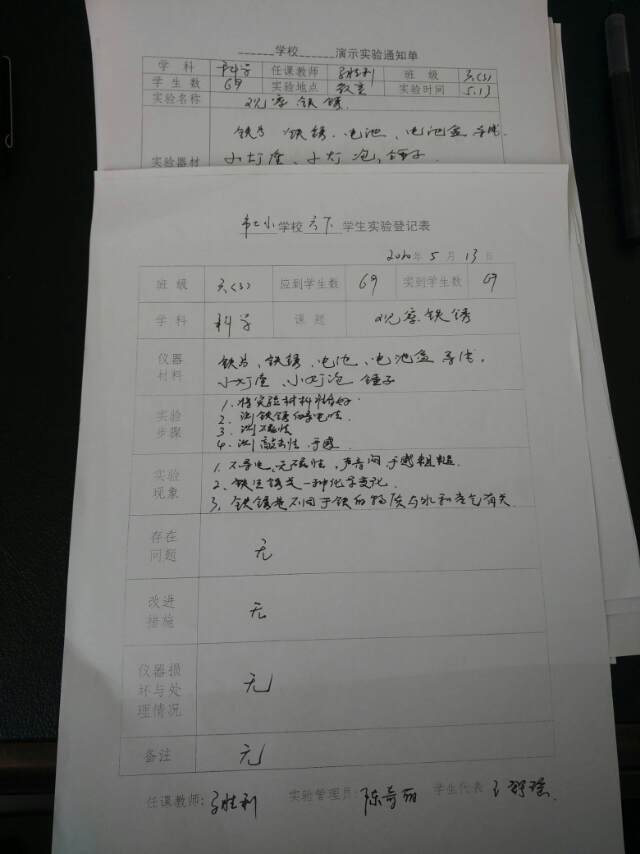 ______学校______演示实验通知单
学 科 科学 任课教师 胜利 班 级 六(3)
学 生 数 69 实验地点 教室 实验时间 5.13
实验名称 观察铁锈
铁片 铁锈、电池、电池盒 导线
实验器材 小灯座、小灯泡、锤子
韦七小学校 六下 学生实验登记表
2020年 5 月 13 日
班 级 六(3) 应到学生数 69 实到学生数 69
学 科 科学 课 题 观察铁锈
仪器材料 铁片、铁锈、电池、电池盒 导线,
小灯座、小灯泡 锤子
实验步骤 1、将实验材料准备好
2、测铁锈的导电性
3、测磁性
4、测敲击性、手感
实验现象 1、不导电、无磁性,声音闷 手感粗糙
2、铁生锈是一种化学变化
3、铁锈是不同于铁的物质与水和空气有关
存在问题 无
改进措施 无
仪器损坏与处理情况 无
备注 无
任课教师: 胜利 实验管理员: 陈奇丽 学生代表